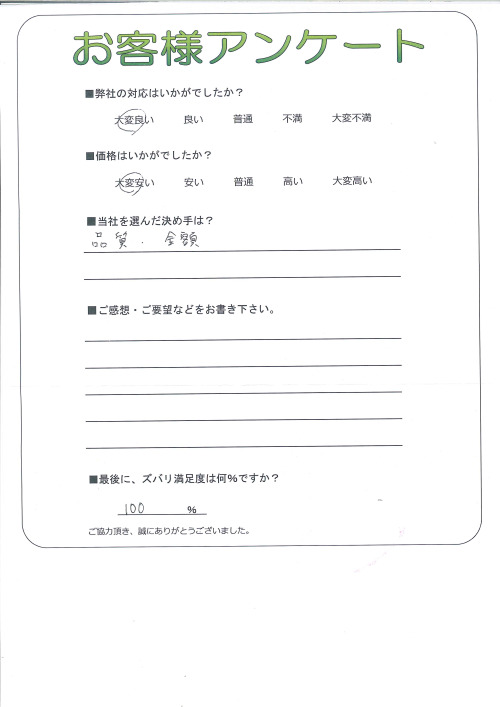 お客様アンケート
■弊社の対応はいかがでしたか？
大変良い 良い 普通 不満 大変不満
■価格はいかがでしたか？
大変安い 安い 普通 高い 大変高い
■当社を選んだ決め手は？
品質. 金額
■ご感想・ご要望などをお書き下さい。
■最後に、ズバリ満足度は何%ですか？
100 %
ご協力頂き、誠にありがとうございました。